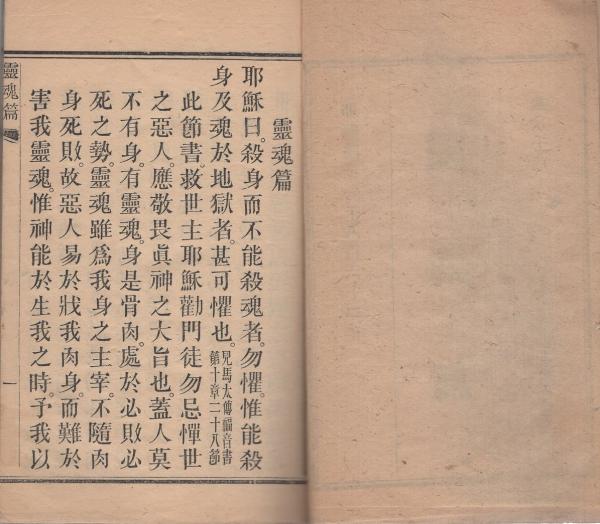 靈魂篇
耶穌曰。殺身而不能殺魂者。勿懼。惟能殺
身及魂於地獄者。甚可懼也。見馬太傳福音書第十章二十八節
此節書。救世主耶穌勸門徒勿忌憚世
之惡人。應敬畏眞神之大旨也。蓋人莫
不有身。有靈魂。身是骨肉。處於必敗必
死之勢。靈魂雖爲我身之主宰。不隨肉
身死敗。故惡人易於戕我肉身。而難於
害我靈魂。惟神能於生我之時。予我以
靈魂篇
一